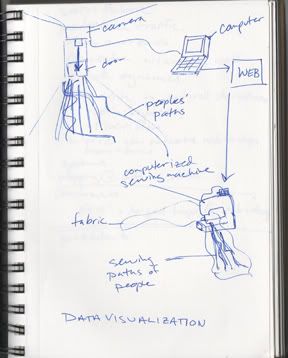 camera
computer
door
WEB
peoples'
paths
computerized
sewing machine
fabric
sewing
paths of
people
DATA VISUALIZATION